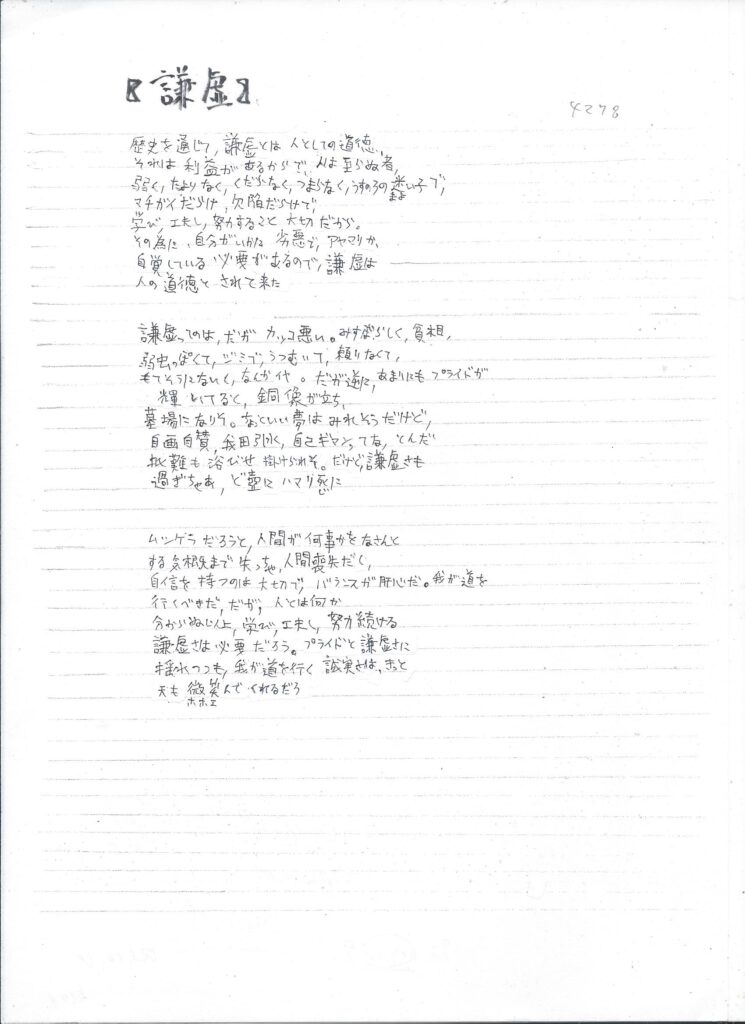 〖謙虚〗
4278
歴史を通じて、謙虚とは 人としての道徳、
それは 利益があるからで、人は至らぬ者、
弱く、たよりなく、くだらなく、つまらなく、うすのろの迷い子で、
まよ
マチガイだらけ、欠陥だらけで、
学び、工夫し、努力すること 大切だから。
その為に、自分がいかに 劣悪で、アヤマリか、
自覚している 必要があるので、謙虚は
人の道徳と されて来た
謙虚ってのは、だが カッコ悪い。みすぼらしく、貧相、
弱虫っぽくて、ジミで、うつむいて、頼りなくて、
もてそうにないく、なんか 。だが逆に、あまりにもプライドが
輝 てると、銅像が立ち、
墓場になりそ。なといい夢は みれそうだけど、
自画自賛、我田引水、自己ギマンってな、とんだ
批難も 浴びせ 掛けられそ。だけど、謙虚さも
過ぎちゃあ、ど壷に ハマリ死に
ムツゲラだろうと、人間が何事かをなさんと
する気概まで 失っちゃ、人間喪失だく、
自信を持つのは 大切で、バランスが肝心だ。我が道を
行くべきだ、だが、人とは何か
分からぬ以上、学び、工夫し、努力続ける
謙虚さは必要だろう。プライドと謙虚さに
揺れつつも、我が道を行く 誠実さは、きっと
天も 微笑んで くれるだろ
ホホエ